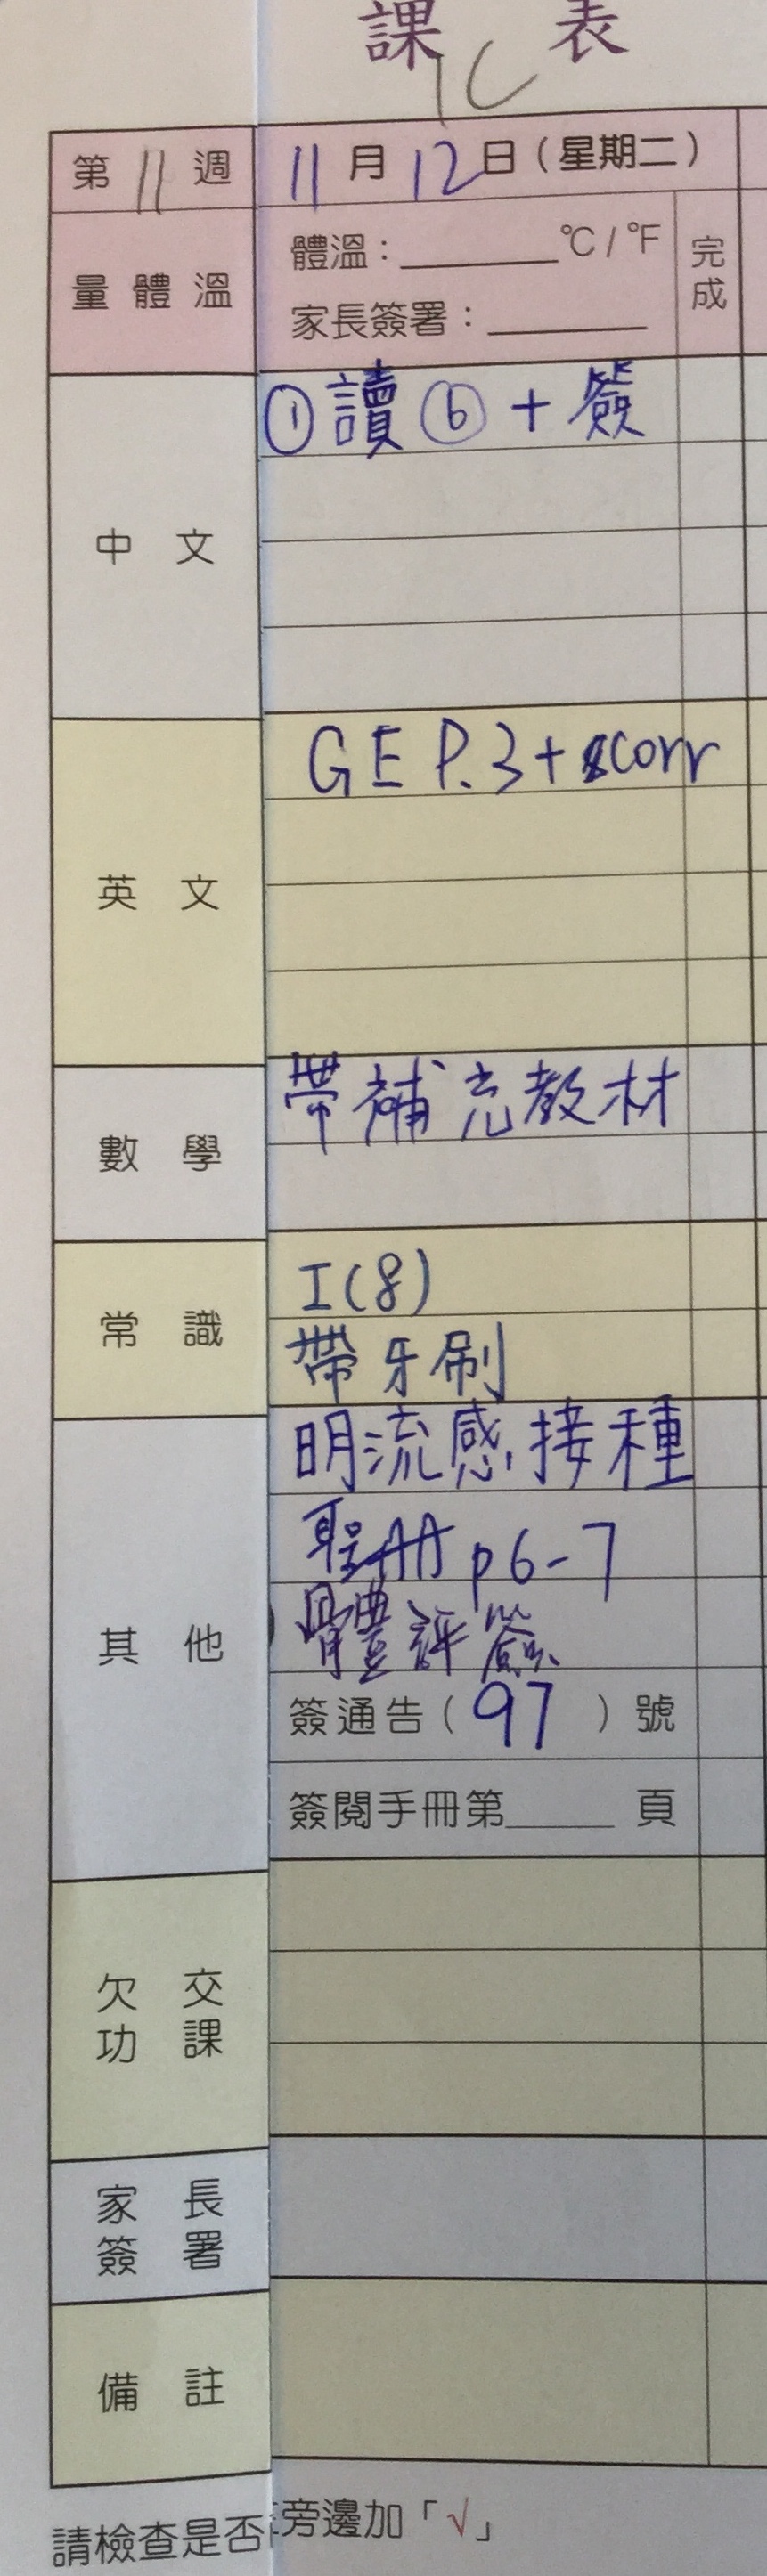 課 表
1C
第 11 週
11 月 12 日（星期二）
量體溫
體溫：______ °C / °F
家長簽署：______
完成
中 文
① 讀 ⑥ + 簽
英 文
GE P.3 + corr
數 學
帶補充教材
常 識
I(8)
帶牙刷
其 他
明流感接種
聖 p6-7
體評簽
簽通告（97）號
簽閱手冊第____頁
欠 交
功 課
家 長
簽 署
備 註
請檢查是否
旁邊加「√」